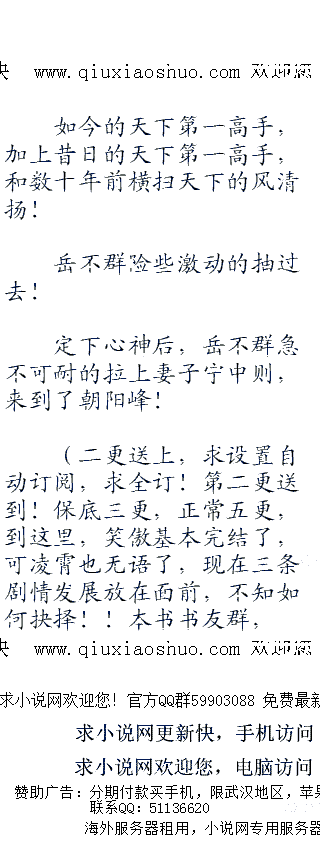 www.qiuxiaoshuo.com 欢迎您
如今的天下第一高手，
加上昔日的天下第一高手，
和数十年前横扫天下的风清
扬！
岳不群险些激动的抽过
去！
定下心神后，岳不群急
不可耐的拉上妻子宁中则，
来到了朝阳峰！
（二更送上，求设置自
动订阅，求全订！第二更送
到！保底三更，正常五更，
到这里，笑傲基本完结了，
可凌霄也无语了，现在三条
剧情发展放在面前，不知如
何抉择！！本书书友群，
www.qiuxiaoshuo.com 欢迎您
求小说网欢迎您！官方QQ群59903088 免费最新
求小说网更新快，手机访问
求小说网欢迎您，电脑访问
赞助广告：分期付款买手机，限武汉地区，苹果
联系QQ：51136620
海外服务器租用，小说网专用服务器